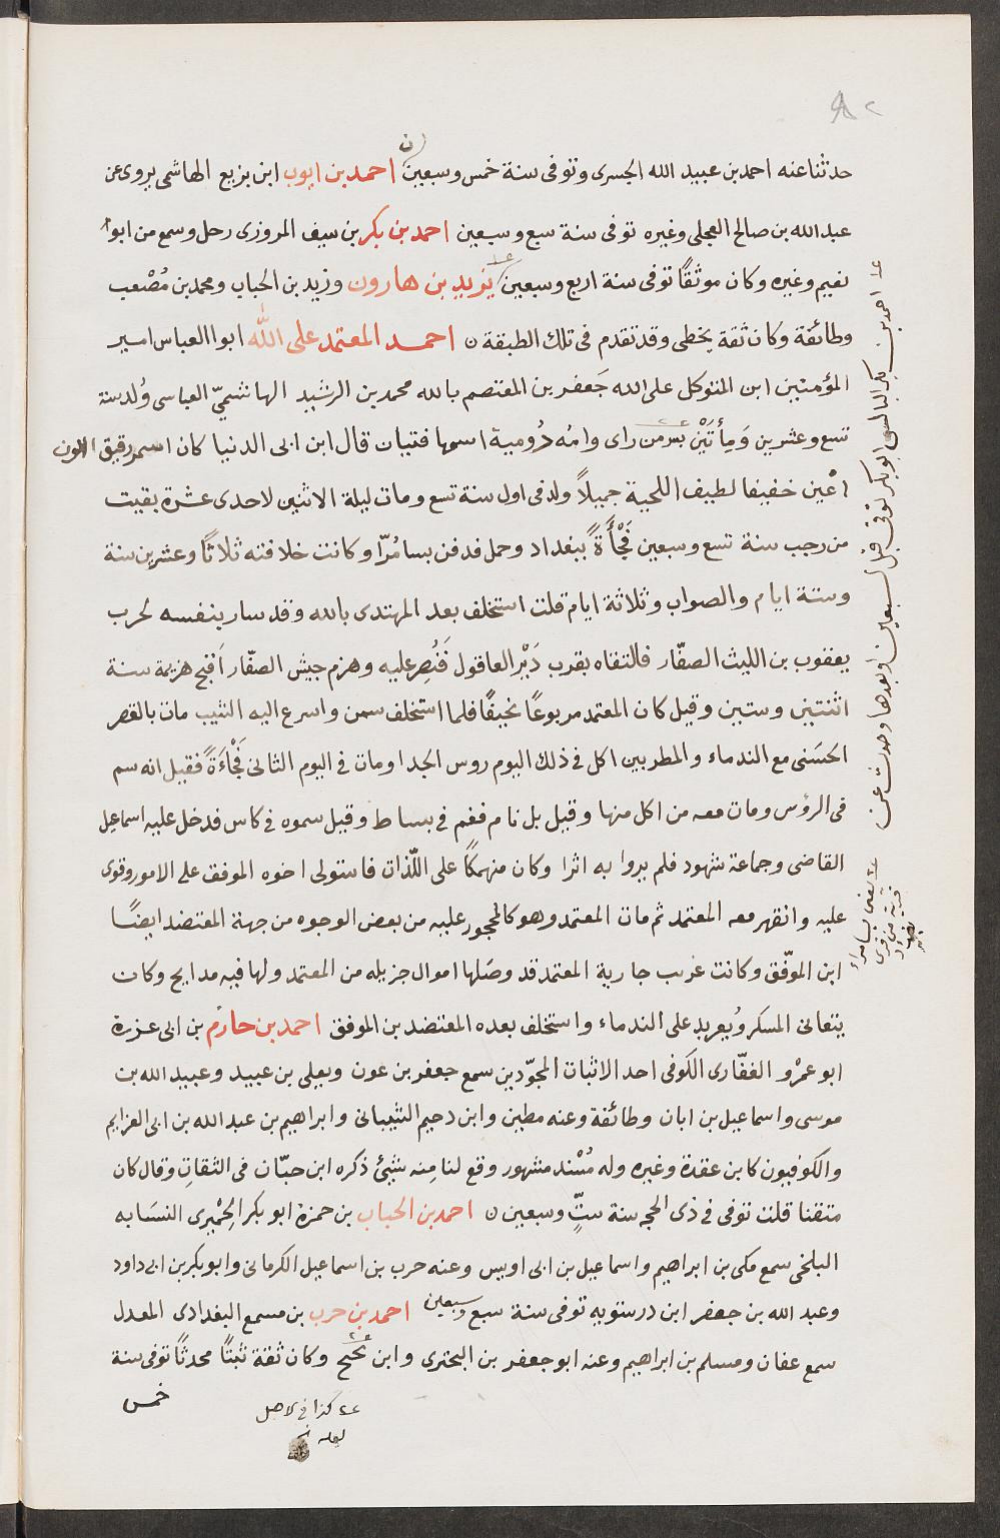 حدثنا عنه احمد بن عبيد الله الجسرى وتوفى سنة خمس وسبعين ن احمد بن ايوب ابن بزيع الهاشمى يروى عن
عبد الله بن صالح العجلى وغيره توفى سنة سبع وسبعين احمد بن بكر بن سيف المروزى رحل وسمع من ابو
نعيم وغيره وكان موثقًا توفى سنة اربع وسبعين يزيد بن هارون وزيد بن الحباب ومحمد بن مُصْعب
وطائفة وكان ثقة يخطى وقد تقدم فى تلك الطبقة ن احمد المعتمد على الله ابوا العباس امير
المؤمنين ابن المتوكل على الله جَعفر بن المعتصم بالله محمد بن الرشيد الهاشميّ العباسى وُلد سنة
تسع وعشرين وَمِأتَيْن بسر من راى وامه رُومية اسمها فتيان قال ابن ابى الدنيا كان اسمر رقيق اللون
اعْين خفيفا لطيف اللحية جميلاً ولد فى اول سنة تسع ومات ليلة الاثنين لاحدى عشرة بقيت
من رجب سنة تسع وسبعين فَجْأَةً ببغداد وحمل فدفن بسامُرّا وكانت خلافته ثلاثًا وعشرين سنة
وستة ايام والصواب وثلاثة ايام قلت استخلف بعد المهتدى بالله وقد سار بنفسه لحرب
يعقوب بن الليث الصفّار فالتقاه بقرب دَيْر العاقول فَنُصِر عليه وهزم جيش الصفّار اَقبح هزيمة سنة
اثنتين وستين وقيل كان المعتمد مربوعًا نحيفًا فلما استخلف سمن واسرع اليه الشيب مات بالقصر
الحسَنى مع الندماء والمطربين اكل فى ذلك اليوم روس الجدا ومات فى اليوم الثانى فَجْاءَةً فقيل انه سم
فى الرؤس ومات معه من اكل منها وقيل بل نام فغم فى بساط وقيل سموه فى كاس فدخل عليه اسماعيل
القاضى وجماعة شهود فلم يروا به اثرا وكان منهمكًا على اللّذات فاستولى اخوه الموفق على الامور وقوى
عليه وانقهر معه المعتمد ثم مات المعتمد وهو كالمحجور عليه من بعض الوجوه من جهة المعتضد ايضًا
ابن الموفّق وكانت عريب جارية المعتمد قد وصَلها اموال جزيله من المعتمد ولها فيه مدايح وكان
يتعانى المسكر ويُعربد على الندماء واستخلف بعده المعتضد بن الموفق احمد بن حازم بن ابى عزرة
ابو عمْرو الغفّارى الكوفى احد الاثبات المجوّدين سمع جعفر بن عون ويعلى بن عبيد وعبيد الله بن
موسى واسماعيل بن ابان وطائفة وعنه مطين وابن دحيم الشيبانى وابراهيم بن عبد الله بن ابى العزايم
والكوفيون كابن عقدة وغيره وله مُسْند مشهور وقع لنا مِنه شيئ ذكره ابن حبّان فى الثقات وقال كان
متقنا قلت توفى فى ذى الحجه سنة ستّ وسبعين ن احمد بن الحباب بن حمزة ابو بكر الحِمْيرى النسَّابه
البلخى سمع مكى بن ابراهيم واسماعيل بن ابى اويس وعنه حرب بن اسماعيل الكرمانى وابو بكر بن ابى داود
وعبد الله بن جعفر ابن درستويه توفى سنة سبع وسبعين احمد بن حرب بن مسمع البغدادى المعدل
سمع عفان ومسلم بن ابراهيم وعنه ابو جعفر بن البخترى وابن نجيح وكان ثقة ثبتًا محدثًا توفى سنة
خمس
كذا فى الاصل
لعله
احمد بن بكر البالسى ابو بكر توفى قبل السبعين او بعدها وحدث عن
يعنى بسامراء
قرية من قرى
بغداد